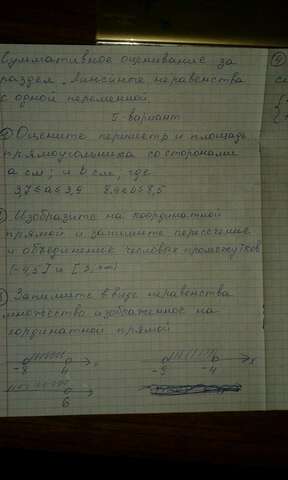 Суммативное оценивание за
раздел „Линейные неравенства
с одной переменной
I - вариант
Оцените периметр и площадь
прямоугольника со сторонами
а см; и в см, где
3,7 ≤ а ≤ 3,9 8,4 ≤ b ≤ 8,5
Изобразите на координатной
прямой и запишите пересечение
и объединение числовых промежутков
[-4;5] и
Запишите в виде неравенства
множество изображенное на
координатной прямой
-8 4 x -9 -4 x
6